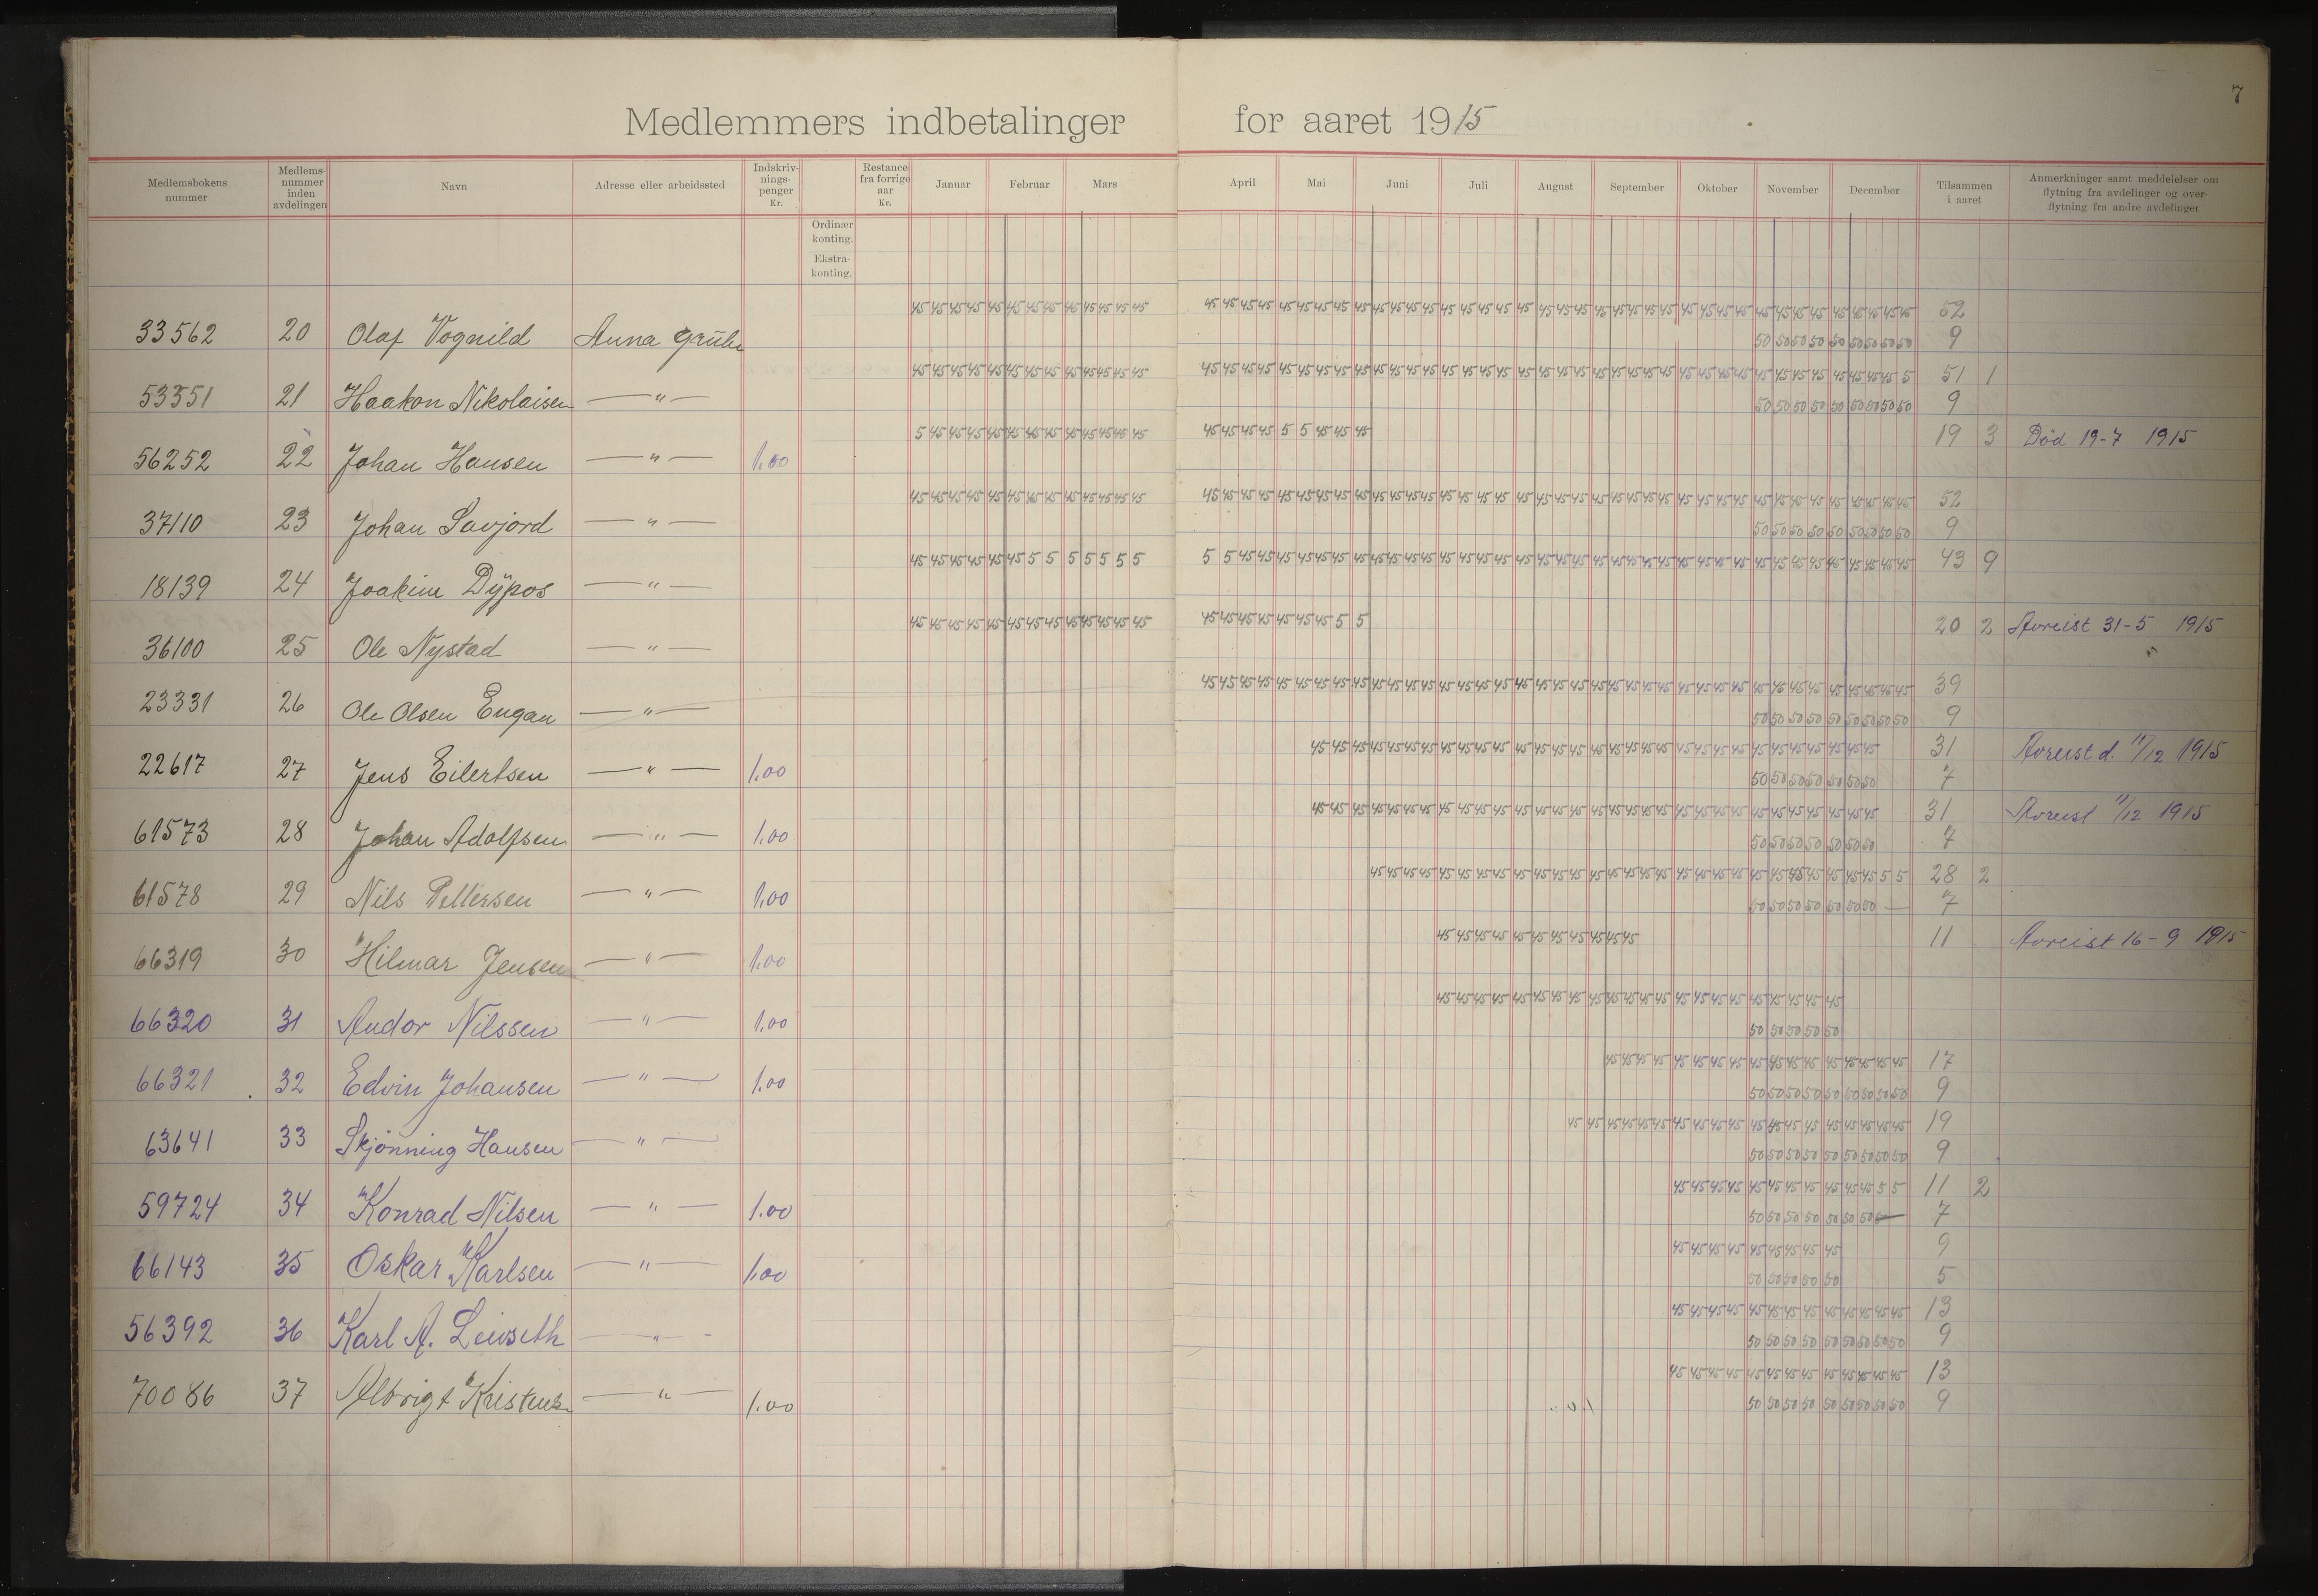 7
Medlemmers indbetalinger for aaret 1915
Medlemsbokens nummer | Medlems-nummer inden avdelingen | Navn | Adresse eller arbeidssted | Indskriv-nings-penger Kr. | Restance fra forrige aar Kr. | Januar | Februar | Mars | April | Mai | Juni | Juli | August | September | Oktober | November | December | Tilsammen i aaret | Anmerkninger samt meddelelser om flytning fra avdelinger og over-flytning fra andre avdelinger
Ordinær konting.
Ekstra-konting.
45 45 45 45 45 45 45 45 45 45 45 45 45 45 45 45 45 45 45 45 45 45 45 45 45 45 45 45 45 45 45 45 45 45 45 45 45 45 45 45 45 45 45 45 45 45 45 45 45 45 45 45 52
33562 20 Olaf Vognild Anna Grube 50 50 50 50 50 50 50 50 50 9
45 45 45 45 45 45 45 45 45 45 45 45 45 45 45 45 45 45 45 45 45 45 45 45 45 45 45 45 45 45 45 45 45 45 45 45 45 45 45 45 45 45 45 45 45 45 45 45 45 45 45 5 51 1
53351 21 Haakon Nikolaisen — " — 50 50 50 50 50 50 50 50 50 9
5 45 45 45 45 45 45 45 45 45 45 45 45 45 45 45 45 5 5 45 45 45 19 3 Död 19-7 1915
56252 22 Johan Hansen — " — 1.00
45 45 45 45 45 45 45 45 45 45 45 45 45 45 45 45 45 45 45 45 45 45 45 45 45 45 45 45 45 45 45 45 45 45 45 45 45 45 45 45 45 45 45 45 45 45 45 45 45 45 45 45 52
37110 23 Johan Savjord — " — 50 50 50 50 50 50 50 50 50 9
45 45 45 45 45 45 5 5 5 5 5 5 5 5 5 45 45 45 45 45 45 45 45 45 45 45 45 45 45 45 45 45 45 45 45 45 45 45 45 45 45 45 45 45 45 45 45 45 45 45 45 45 43 9
18139 24 Joakim Dÿpos — " —
45 45 45 45 45 45 45 45 45 45 45 45 45 45 45 45 45 45 45 45 5 5 20 2 Avreist 31-5 1915
36100 25 Ole Nystad — " —
45 45 45 45 45 45 45 45 45 45 45 45 45 45 45 45 45 45 45 45 45 45 45 45 45 45 45 45 45 45 45 45 45 45 45 45 45 45 45 39
23331 26 Ole Olsen Engan — " — 50 50 50 50 50 50 50 50 50 9
45 45 45 45 45 45 45 45 45 45 45 45 45 45 45 45 45 45 45 45 45 45 45 45 45 45 45 45 45 45 45 31 Avreist d. 11/12 1915
22617 27 Jens Eilertsen — " — 1.00 50 50 50 50 50 50 50 7
45 45 45 45 45 45 45 45 45 45 45 45 45 45 45 45 45 45 45 45 45 45 45 45 45 45 45 45 45 45 45 31 Avreist 11/12 1915
61573 28 Johan Adolfsen — " — 1.00 50 50 50 50 50 50 50 7
45 45 45 45 45 45 45 45 45 45 45 45 45 45 45 45 45 45 45 45 45 45 45 45 45 45 45 45 5 5 28 2
61578 29 Nils Pettersen — " — 1.00 50 50 50 50 50 50 50 — 7
45 45 45 45 45 45 45 45 45 45 45 11 Avreist 16-9 1915
66319 30 Hilmar Jensen — " — 1.00
45 45 45 45 45 45 45 45 45 45 45 45 45 45 45 45 45 45 45 45 45 45
66320 31 Andor Nilssen — " — 1.00 50 50 50 50 50
45 45 45 45 45 45 45 45 45 45 45 45 45 45 45 45 45 17
66321 32 Edvin Johansen — " — 1.00 50 50 50 50 50 50 50 50 50 9
45 45 45 45 45 45 45 45 45 45 45 45 45 45 45 45 45 45 45 19
63641 33 Skjönning Hansen — " — 50 50 50 50 50 50 50 50 50 9
45 45 45 45 45 45 45 45 45 45 45 5 5 11 2
59724 34 Konrad Nilsen — " — 1.00 50 50 50 50 50 50 50 — 7
45 45 45 45 45 45 45 45 45 9
66143 35 Oskar Karlsen — " — 1.00 50 50 50 50 50 5
45 45 45 45 45 45 45 45 45 45 45 45 45 13
56392 36 Karl A. — " — 50 50 50 50 50 50 50 50 50 9
45 45 45 45 45 45 45 45 45 45 45 45 45 13
70086 37 Albrigt — " — 1.00 50 50 50 50 50 50 50 50 50 9